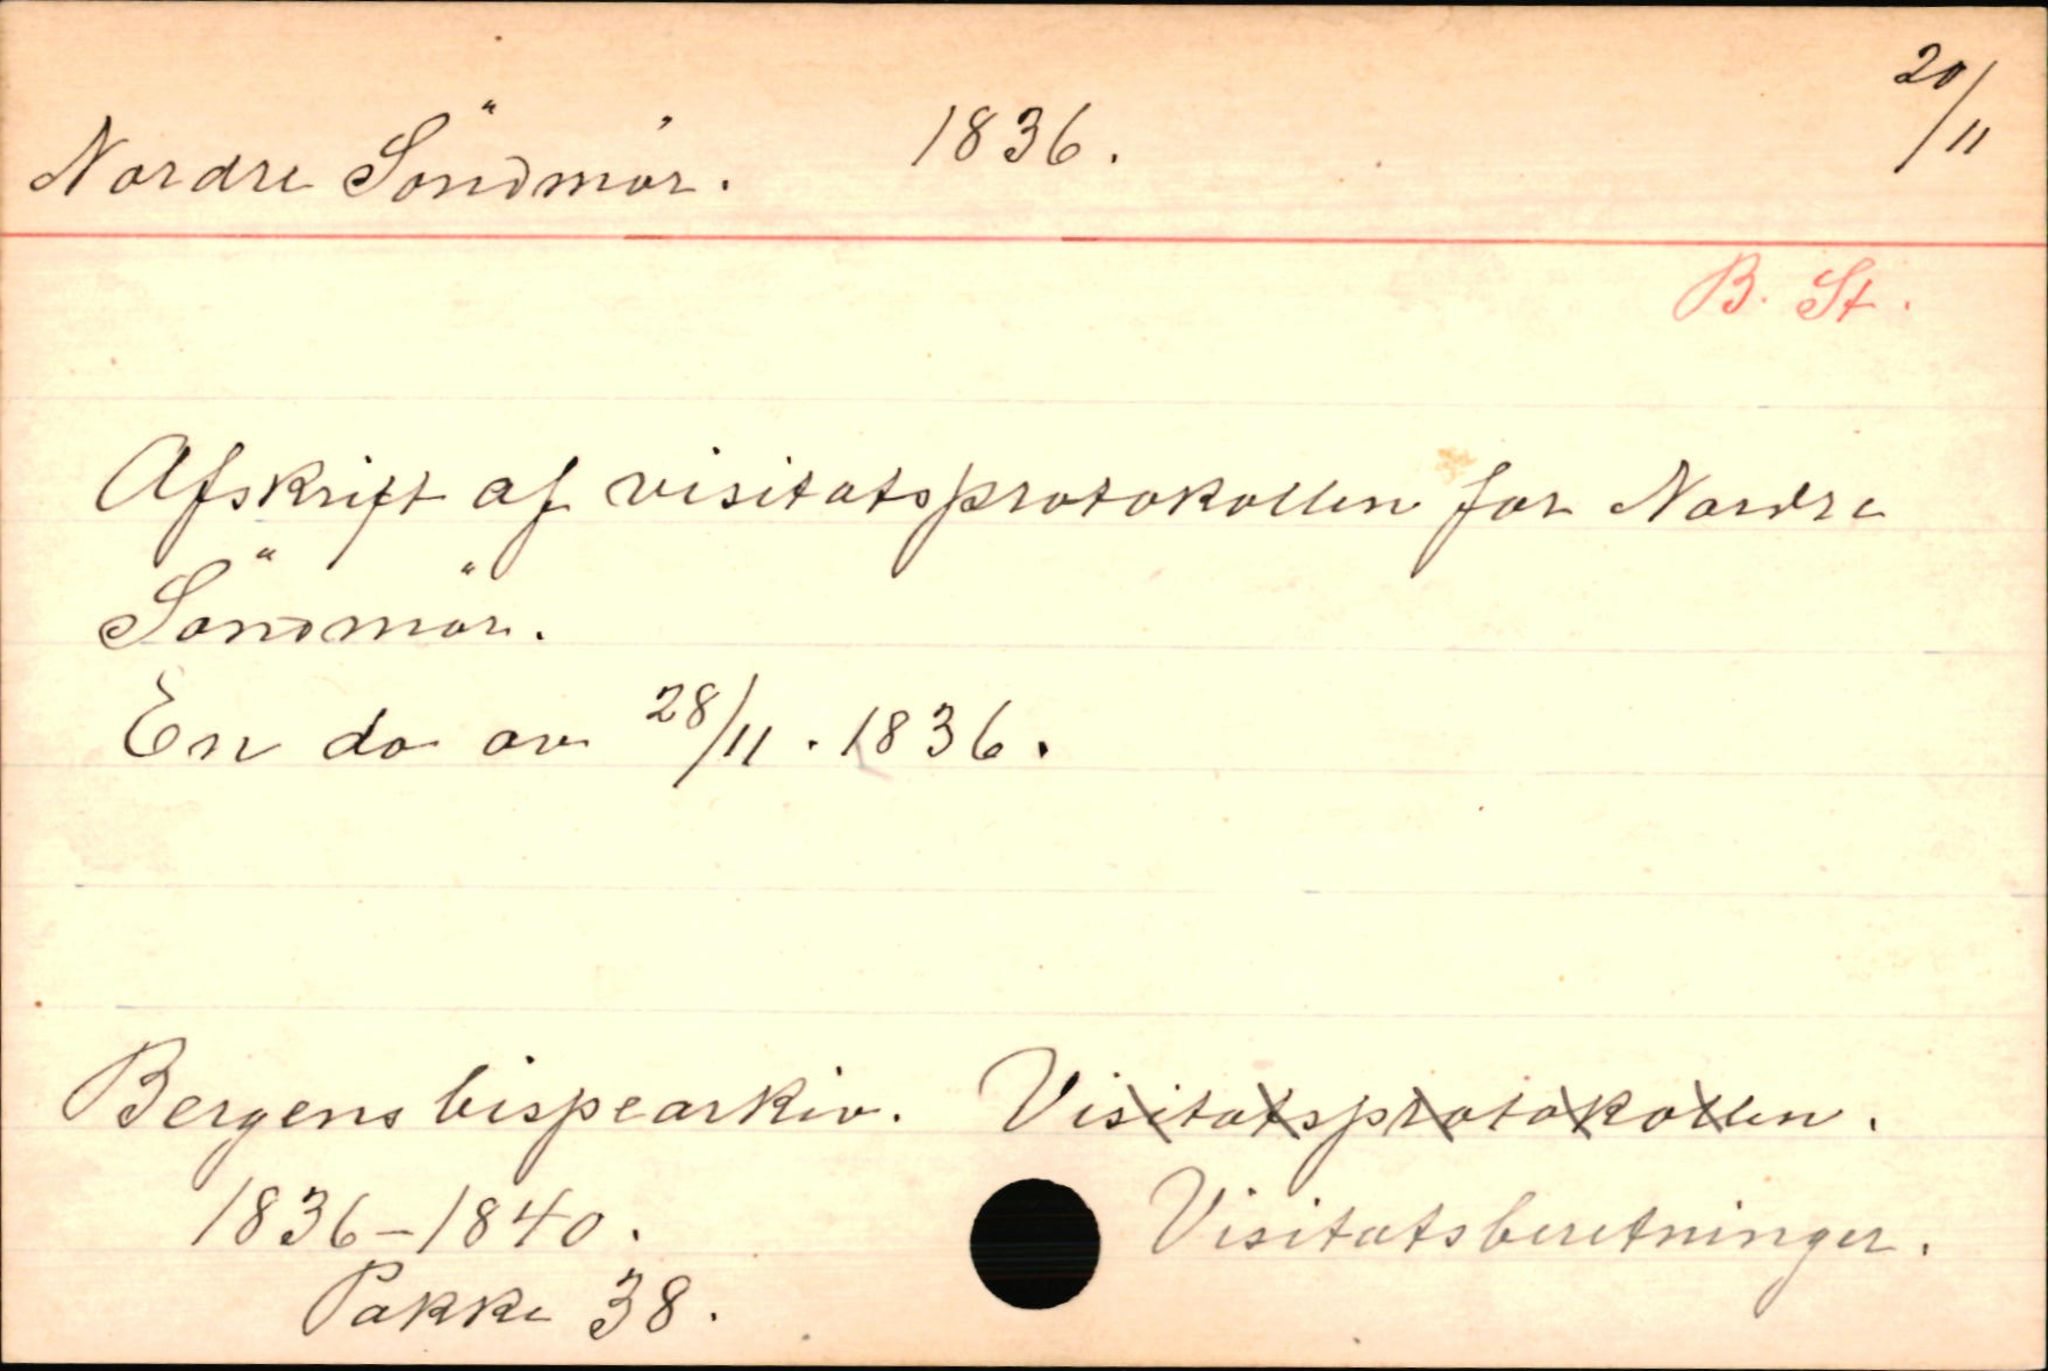 Nordre Söndmör. 1836. 20/11
B. St.
Afskrift af visitatsprotokollen for Nordre
Söndmör.
En do av 28/11. 1836.
Bergens bispearkiv. Visitatsprotokollen.
1836-1840. Visitatsberetninger.
Pakke 38.